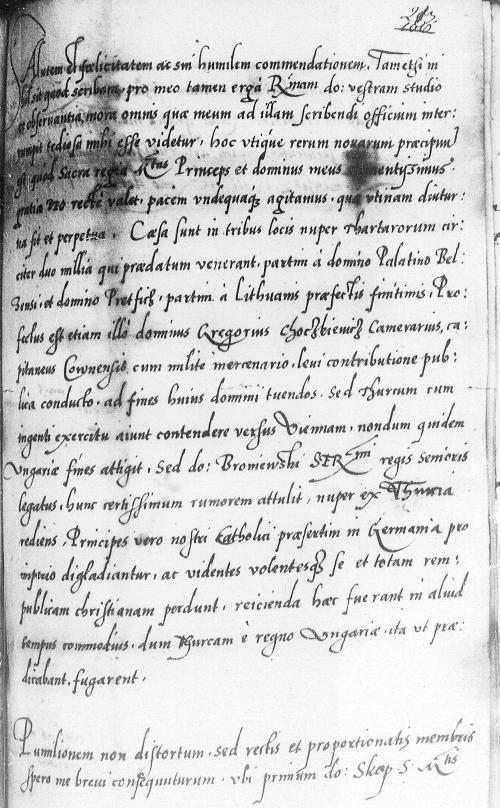 Salutem et fœlicitatem ac sui humilem commendationem. Tametsi ni-
hil sit quod scribam, pro meo tamen erga Rmam do: vestram studio
et observantia, mora omnis quæ meum ad illam scribendi officium inter:
rumpit tediosa mihi esse videtur, hoc vtique rerum novarum præcipuū
est quod Sacra regia Mtas Princeps et dominus meus clementyssimus
gratia DEO recte valet, pacem vndequaq; agitamus, quæ vtinam diutur:
na sit et perpetua. Cæsa sunt in tribus locis nuper Thartarorum cir:
citer duo millia qui prædatum venerant, partim a domino Palatino Bel:
zensi, et domino Pretficz, partim a Lithuanis præfectis finitimis, Pro:
fectus est etiam illo dominus Gregorius Chodzkiewicz Camerarius, ca:
pitaneus Cownensis, cum milite mercenario, levi contributione pub:
lica conducto, ad fines huius dominii tuendos. Sed Thurcum cum
ingenti exercitu aiunt contendere versus Viennam, nondum quidem
Ungariæ fines attigit, Sed do: Broniewski SERmi regis senioris
legatus, hunc certissimum rumorem attulit, nuper ex Thurcia
rediens, Principes vero nostri Catholici præsertim in Germania pro
imperio digladiantur, ac videntes volentesq; se et totam rem:
publicam christianam perdunt, reicienda hæc fuerant in aliud
tempus commodius, dum Thurcam è regno Ungariæ, ita ut præ:
dicabant, fugarent.
Pumilionem non distortum, sed rectis et proportionatis membris
spero me brevi consequuturum, vbi primum do: Skop S: Mtis